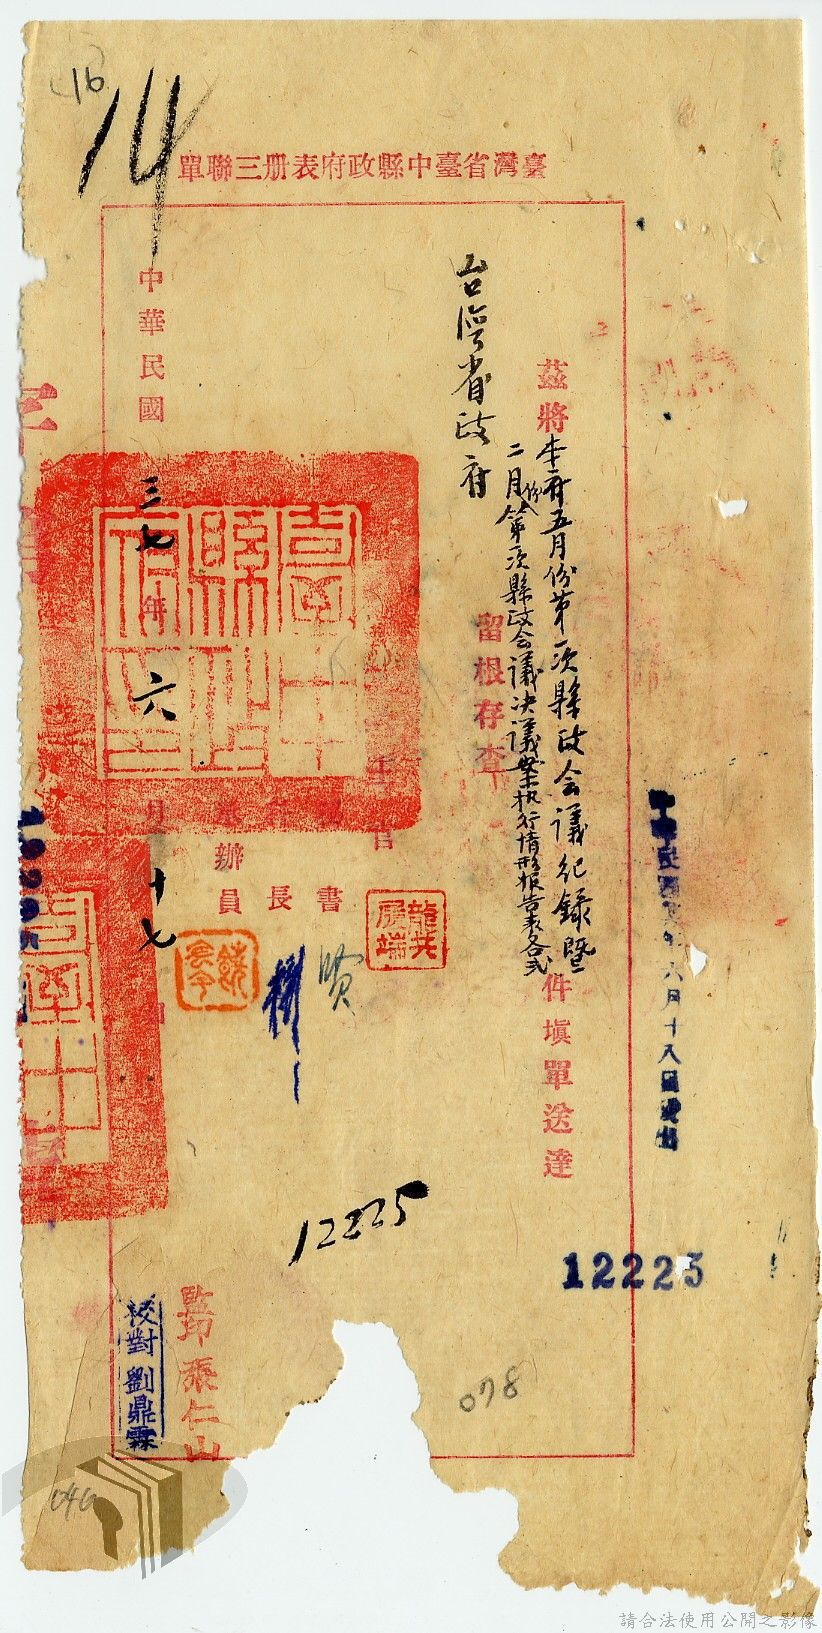 16
14
臺灣省臺中縣政府表册三聯單
中華民國三十七年六月十八日發出
茲將本府五月份第一次縣政会議纪録暨
二月份第 次縣政会議决議案执行情形报告表各弍
件填單送達
台灣省政府
留根存查
主官
龍共
秘書
賢
科長
承辦員
中華民國三七年六月十七日
臺中縣政府印
監印張仁山
校對劉鼎霖
12225
12225
078
046
請合法使用公開之影像